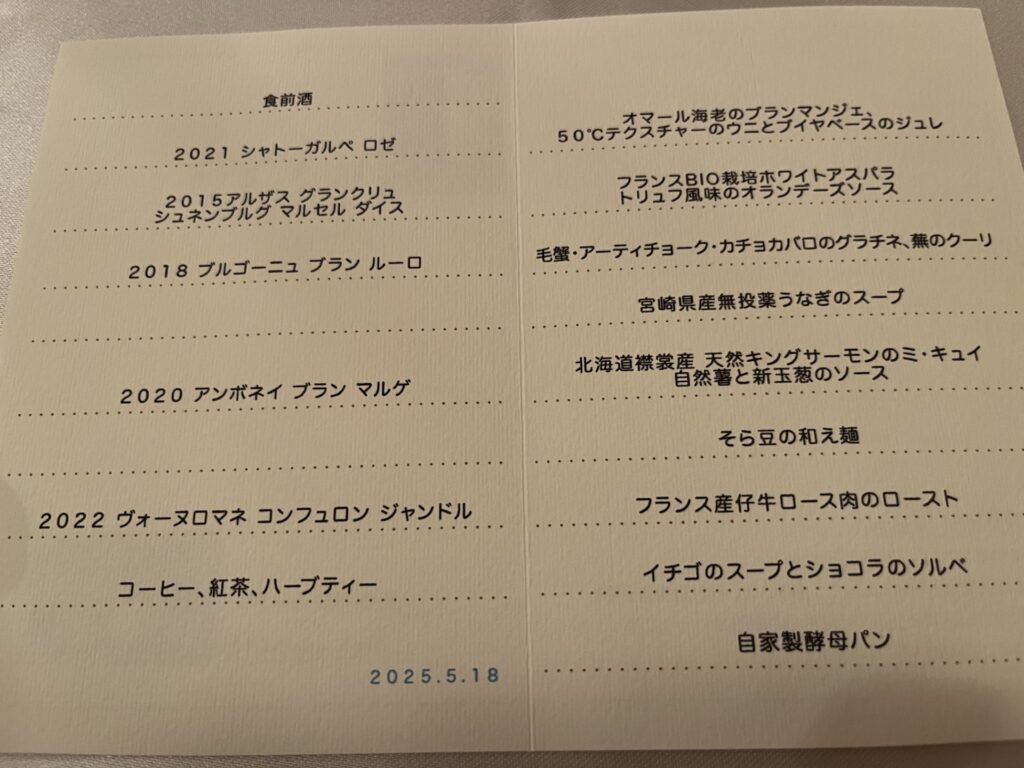 食前酒
2021 シャトーガルペ ロゼ
2015アルザス グランクリュ
シュネンブルグ マルセル ダイス
2018 ブルゴーニュ ブラン ルーロ
2020 アンボネイ ブラン マルゲ
2022 ヴォーヌロマネ コンフュロン ジャンドル
コーヒー、紅茶、ハーブティー
2025.5.18
オマール海老のブランマンジェ、
50℃テクスチャーのウニとブイヤベースのジュレ
フランスBIO栽培ホワイトアスパラ
トリュフ風味のオランデーズソース
毛蟹・アーティチョーク・カチョカバロのグラチネ、蕪のクーリ
宮崎県産無投薬うなぎのスープ
北海道襟裳産 天然キングサーモンのミ・キュイ
自然薯と新玉葱のソース
そら豆の和え麺
フランス産仔牛ロース肉のロースト
イチゴのスープとショコラのソルベ
自家製酵母パン